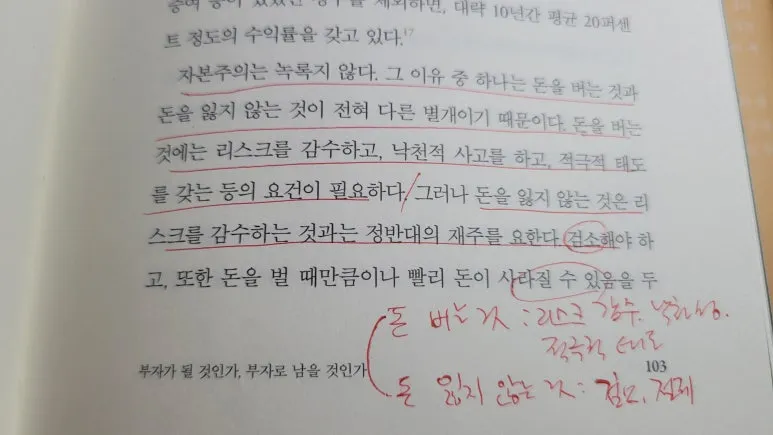 중여 등이 있었던 경우를 제외하면, 대략 10년간 평균 20퍼센
트 정도의 수익률을 갖고 있다.17
자본주의는 녹록지 않다. 그 이유 중 하나는 돈을 버는 것과
돈을 잃지 않는 것이 전혀 다른 별개이기 때문이다. 돈을 버는
것에는 리스크를 감수하고, 낙천적 사고를 하고, 적극적 태도
를 갖는 등의 요건이 필요하다. 그러나 돈을 잃지 않는 것은 리
스크를 감수하는 것과는 정반대의 재주를 요한다. 검소해야 하
고, 또한 돈을 벌 때만큼이나 빨리 돈이 사라질 수 있음을 두
돈 버는 것 : 리스크 감수. 낙천성.
적극적 태도
부자가 될 것인가, 부자로 남을 것인가
103
돈 잃지 않는 것 : 검소, 절제